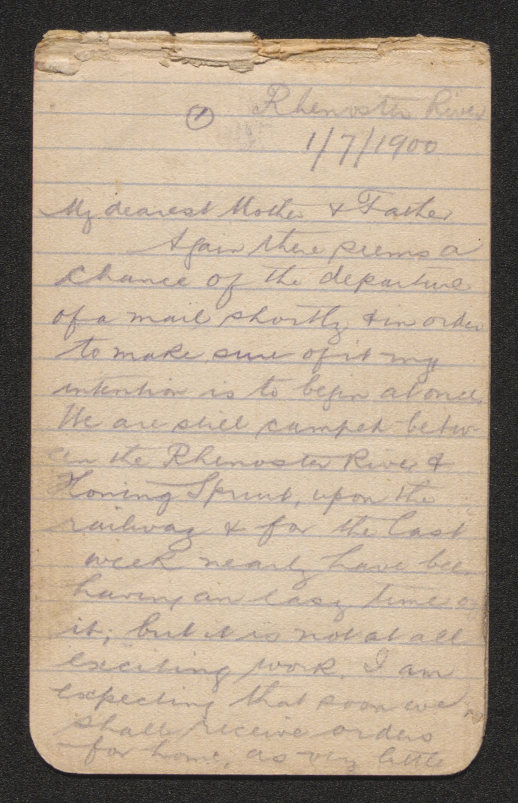 ① Rhenoster River
1/7/1900
My dearest Mother & Father
Again there seems a
chance of the departure
of a mail shortly & in order
to make sure of it my
intention is to begin at once.
We are still camped betw-
een the Rhenoster River &
Honing Spruit, upon the
railway & for the last
week nearly have been
having an easy time of
it; but it is not at all
exciting work. I am
expecting that soon we
shall receive orders
for home, as very little